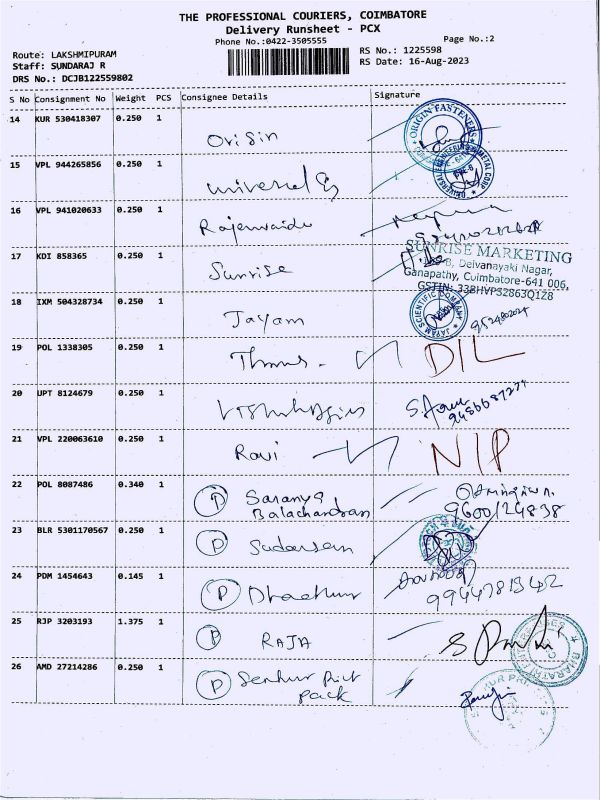 THE PROFESSIONAL COURIERS, COIMBATORE
Delivery Runsheet - PCX
Phone No.:0422-3505555
Page No.:2
Route: LAKSHMIPURAM
RS No.: 1225598
Staff: SUNDARAJ R
RS Date: 16-Aug-2023
DRS No.: DCJB122559802
S No Consignment No Weight PCS Consignee Details Signature
14 KUR 530418307 0.250 1 Origin
ORIGIN FASTENERS
15 VPL 944265856 0.250 1 Universal
METAL CORP
16 VPL 941020633 0.250 1 Rajennaidu
17 KDI 858365 0.250 1 Sunrise
SUNRISE MARKETING
Deivanayaki Nagar,
Ganapathy, Coimbatore-641 006,
GSTIN: 33BHVPS2863Q1Z8
18 IXM 504328734 0.250 1 Jayam
JAYAM SCIENTIFIC COMPANY
19 POL 1338305 0.250 1 DIL
20 UPT 8124679 0.250 1
21 VPL 220063610 0.250 1 Ravi NIP
22 POL 8087486 0.340 1 P Saranya
Balachandran
9600124838
23 BLR 5301170567 0.250 1 P Sudarsan
24 PDM 1454643 0.145 1 P
25 RJP 3203193 1.375 1 P RAJA
BHARATHI ENTERPRISES
26 AMD 27214286 0.250 1 P Senthur Print
pack